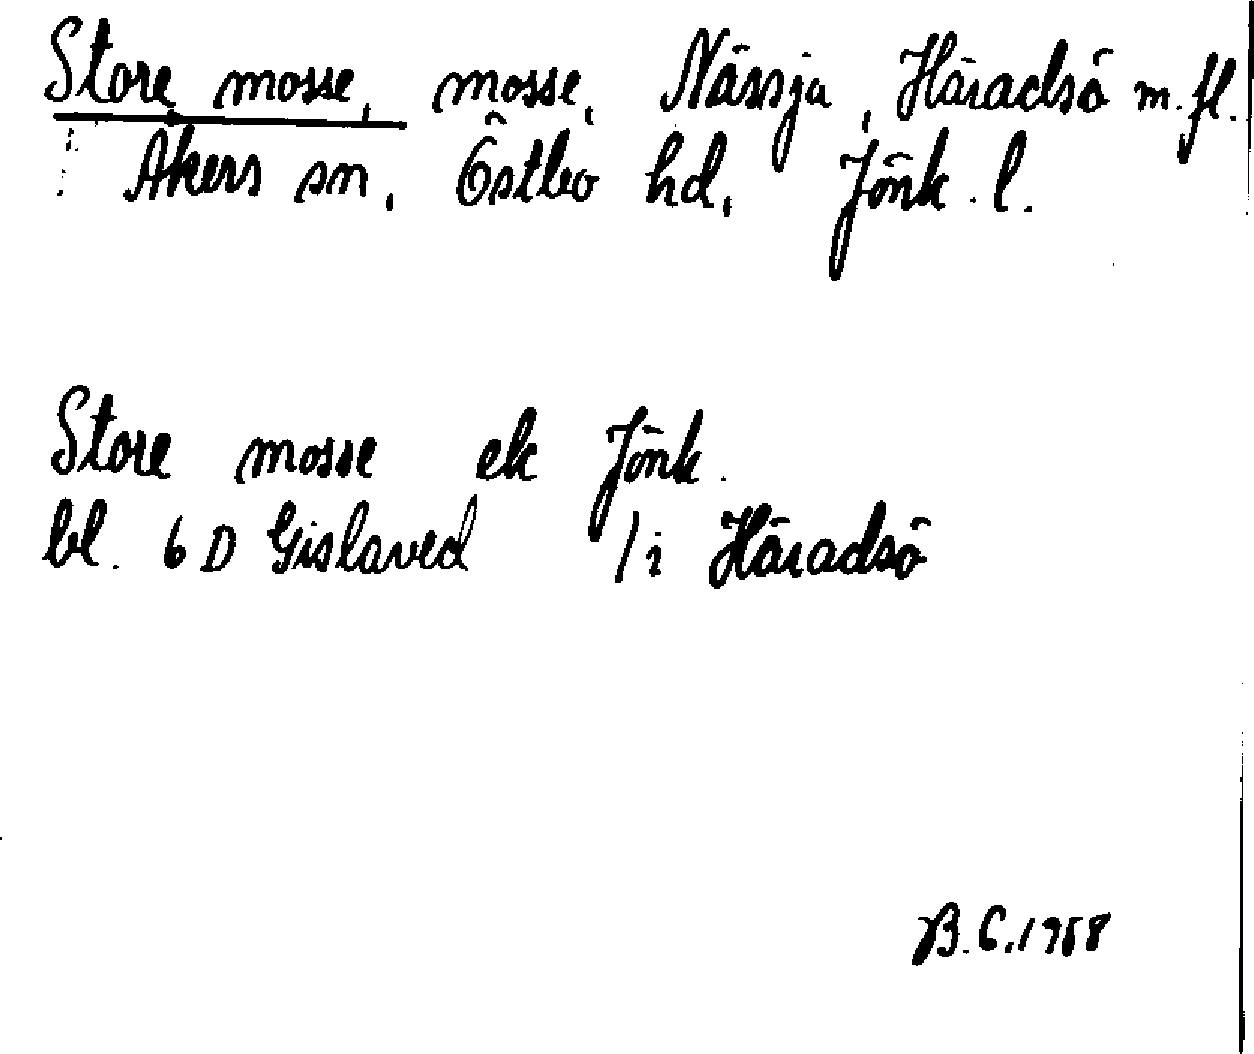 Store mosse, mosse, Nässja, Häradsö m.fl.
Åkers sn, Östbo hd, Jönk. l.
Store mosse ek Jönk.
bl. 6 D Gislaved / i Häradsö
B.C. 1958